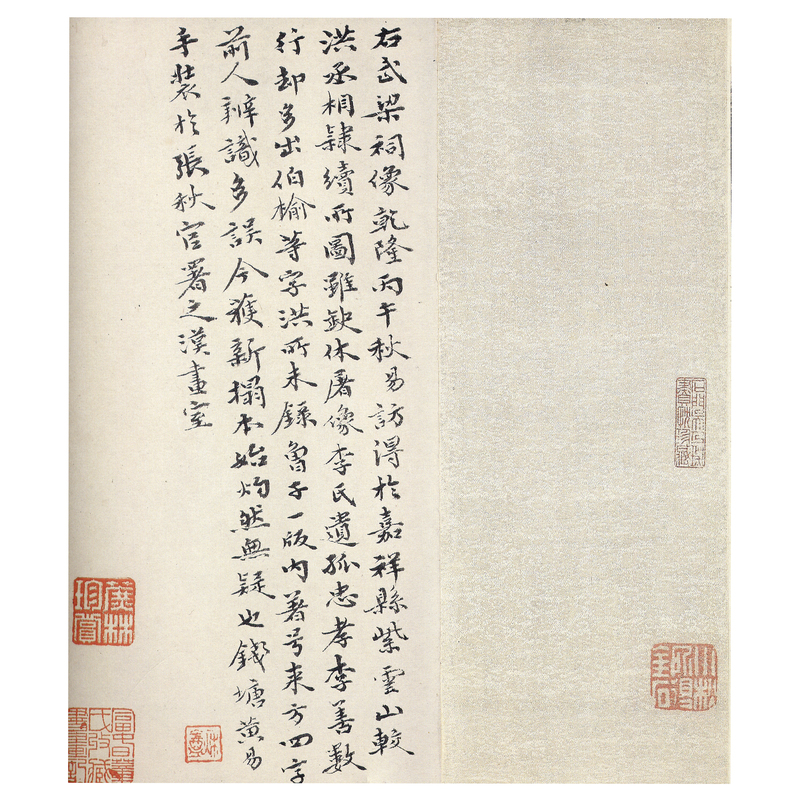 右武梁祠像乾隆丙午秋易訪得於嘉祥縣紫雲山較
洪丞相隷續所圖雖缺休屠像李氏遺孤忠孝李善數
行却多出伯榆等字洪所未錄曾子一版内著号来方四字
前人辨識多誤今獲新搨本始灼然無疑也錢塘黃易
手裝於張秋官署之漢畫室
小松所得金石
蔗林珍賞